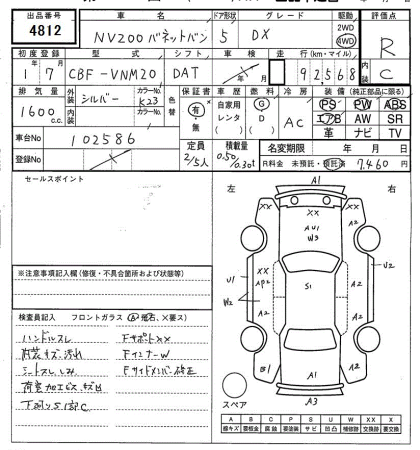 出品番号 車名 ドア形状 グレード 駆動 評価点
4812 NV200 バネットバン 5 DX 2WD 4WD R
初度登録 型式 シフト 車検 走行(km・マイル) 内装
1年7月 CBF-VNM20 DAT 年 月 92,568 C
排気量 外装 シルバー カラーNo. K23 色替 保証書 車歴 燃料 冷房 装備(純正部品に限る)
1600 c.c. 内装 カラーNo. 有・無 自家用 レンタ ( ) G D ( ) AC PS PW ABS
エアB AW SR
革 ナビ TV
車台No 102586 定員 2/5人 積載量 0.50/0.30t 名変期限 年 月 日
登録No R料金 未預託・預託済 7,460円
セールスポイント
左 右
A1
XX XX XX
AU1
W3
A2 A2
U1 XX U2
AP2 S1 A2
W2
A2 A2
B1 A1 A2
スペア A3
※注意事項記入欄(修復・不具合箇所および状態等)
検査員記入 フロントガラス(A飛石、X要ス)
ハンドルスレ FサポートXX
内装キズ、汚れ FインナーW
シートスレ、シミ Fサイドメンバー修正
荷室加工ビス、キズ凹
下廻りS1部C
A B C P S U W XX X
線キズ 要板金 腐蝕 要塗装 サビ 凹凸 補修跡 交換跡 要交換